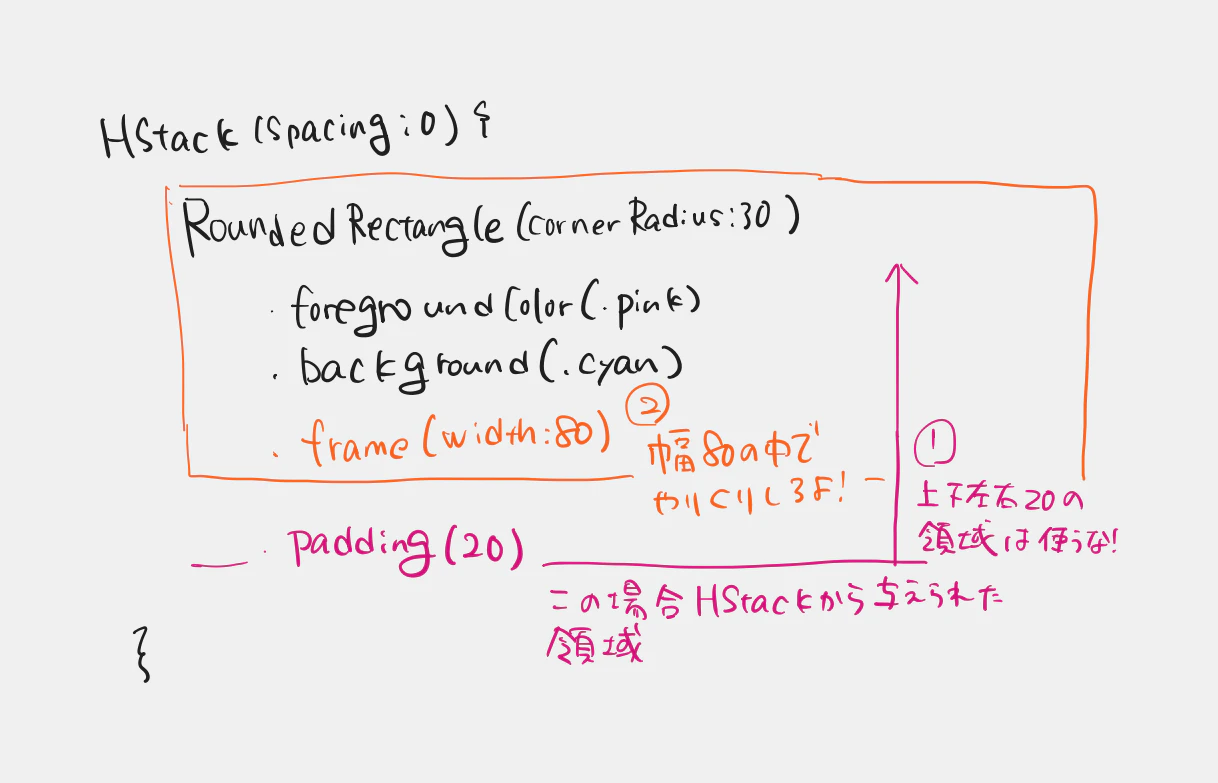 HStack (spacing:0) {
RoundedRectangle (cornerRadius:30)
.foregroundColor(.pink)
.background(.cyan)
.frame(width:80)
②
幅80の中で
やりくりしろよ!
①
上下左右20の
領域は使うな!
.padding(20)
この場合HStackから与えられた
領域
}